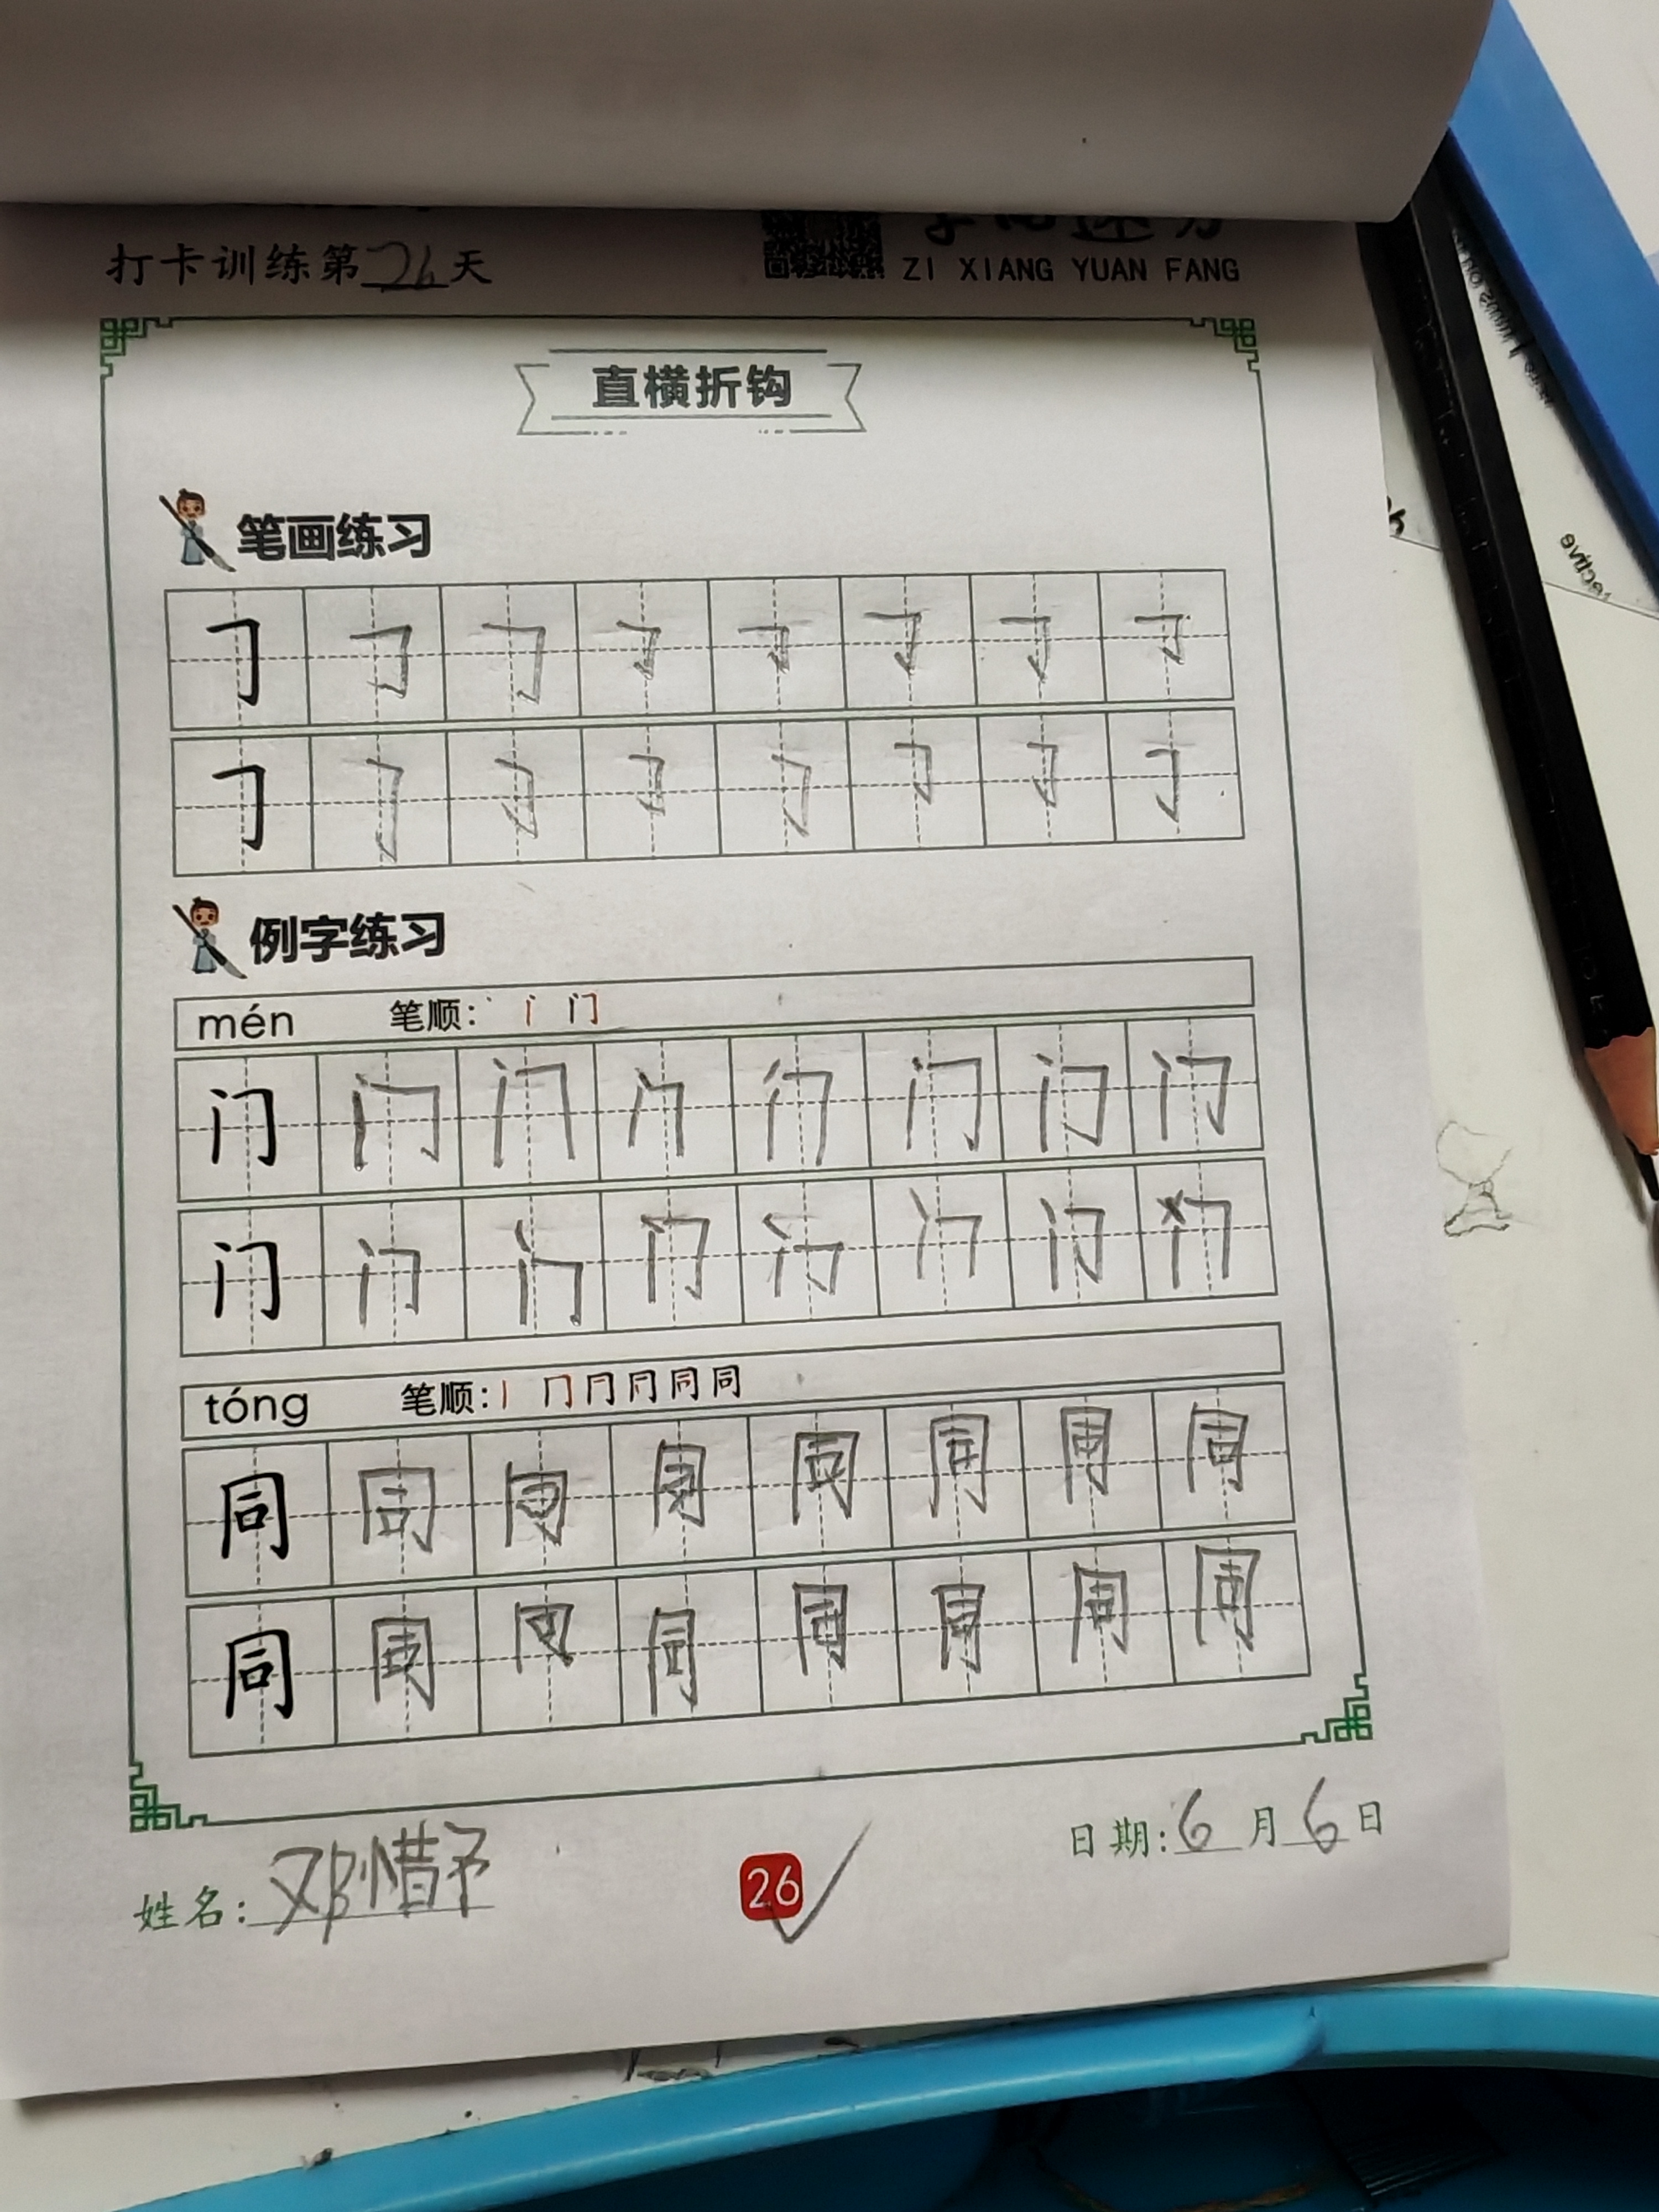 打卡训练第26天
ZI XIANG YUAN FANG
直横折钩
笔画练习
𠃌 𠃌 𠃌 𠃌 𠃌 𠃌 𠃌 𠃌
𠃌 𠃌 𠃌 𠃌 𠃌 𠃌 𠃌 𠃌
例字练习
mén 笔顺: 丶 丨 门
门 门 门 门 门 门 门 门
门 门 门 门 门 门 门 门
tóng 笔顺: 丨 冂 冂 同 同
同 同 同 同 同 同 同 同
同 同 同 同 同 同 同 同
姓名: 邓惜予
26
日期: 6月6日
rective